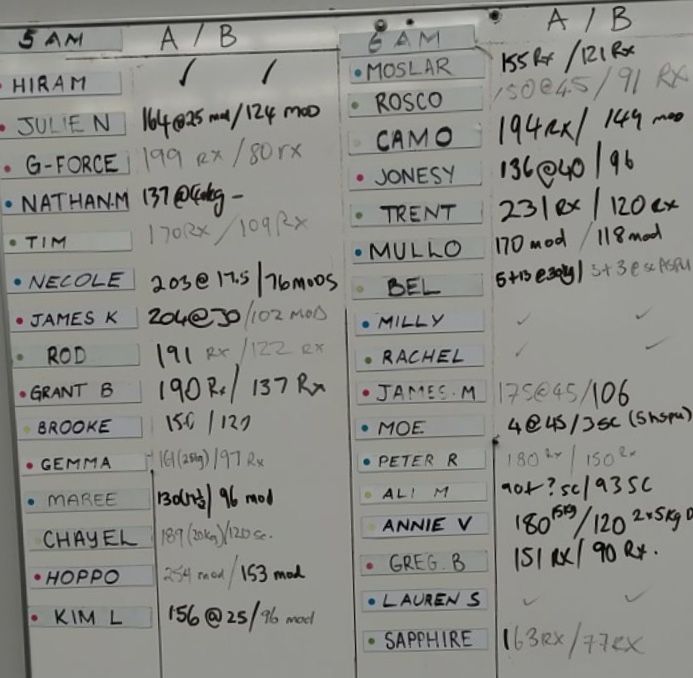 5 AM A / B
HIRAM ✓ ✓
JULIE N 164@25 mod/124 mod
G-FORCE 199 RX / 80 rx
NATHAN.M 137@40kg -
TIM 170RX / 109RX
NECOLE 203@17.5 / 76 MODS
JAMES K 204@30/102 MOD
ROD 191 RX / 122 RX
GRANT B 190 Rx/ 137 Rx
BROOKE /
GEMMA 161(25kg)/97 Rx
MAREE 96 mod
CHAYEL 189(20kg)/120 sc.
HOPPO 254 mod/153 mod
KIM L 156@25/96 mod
6 AM A / B
MOSLAR 155 Rx/121 Rx
ROSCO 150@45/91 RX
CAMO 194 RX/ 149 mod
JONESY 136@40/96
TRENT 231 Rx / 120 Rx
MULLO 170 mod / 118 mod
BEL 5+13@30kg/ 5+3@sc
MILLY ✓ ✓
RACHEL ✓ ✓
JAMES.M 175@45/106
MOE 4@45/3sc (Shspu)
PETER R 180 Rx / 150 Rx
ALI M 90+?sc/93SC
ANNIE V 180 15kg /120 2x5kg D
GREG.B 151 RX/ 90 Rx.
LAUREN S ✓ ✓
SAPPHIRE 163RX/77RX